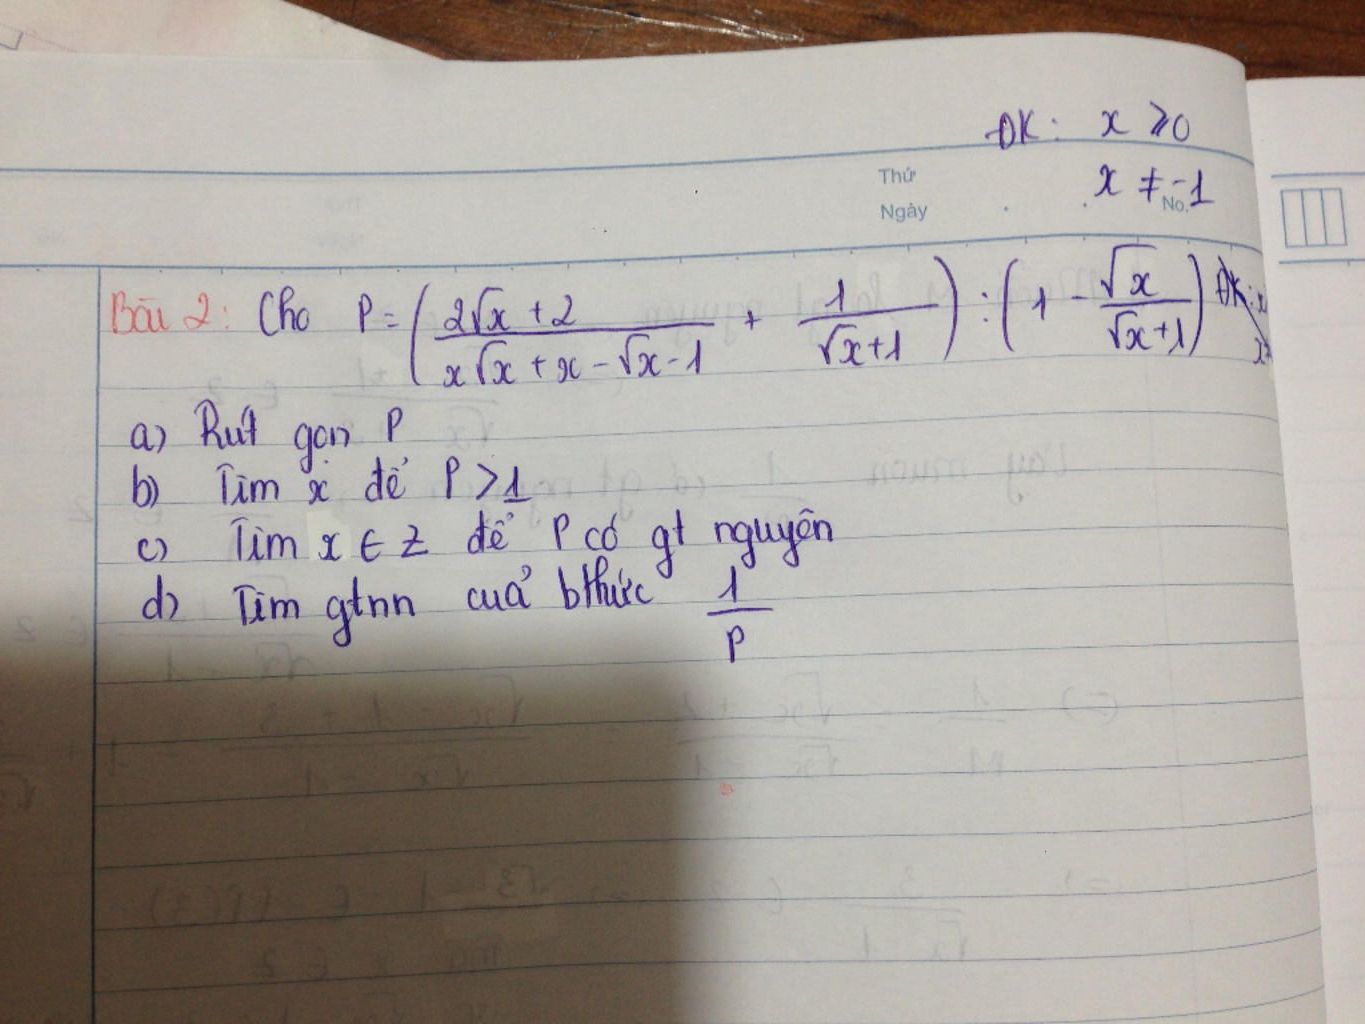 ĐK: x ≥ 0
Thứ
x ≠ -1
No.
Ngày
Bài 2: Cho P = ( (2√x + 2)/(x√x + x - √x - 1) + 1/(√x+1) ) : ( 1 - √x/(√x+1) )
a) Rút gọn P
b) Tìm x để P > 1
c) Tìm x ∈ Z để P có gt nguyên
d) Tìm gtnn cuả bthức 1/P